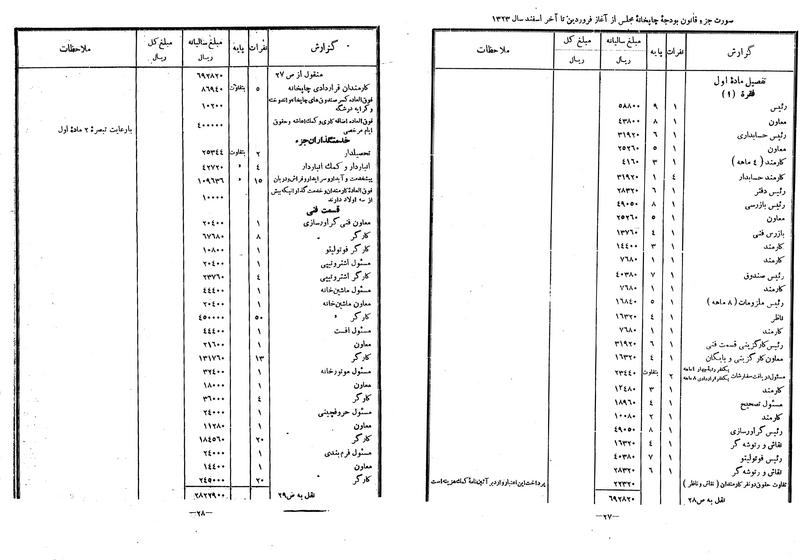 صورت جزء قانون بودجهٔ چاپخانهٔ مجلس از آغاز فروردین تا آخر اسفند سال ۱۳۲۳
گزارش نفرات پایه مبلغ سالیانه ریال مبلغ کل ریال ملاحظات
تفصیل مادهٔ اول
فقرهٔ (۱)
رئیس ۱ ۹ ۵۸۸۰۰
معاون ۱ ۸ ۴۳۸۰۰
رئیس حسابداری ۱ ۶ ۳۱۹۲۰
معاون ۱ ۵ ۲۵۲۶۰
کارمند (۴ ماهه) ۱ ۳ ۴۱۶۰
کارمند حسابدار ۱ ۴ ۳۱۹۲۰
رئیس دفتر ۱ ۶ ۲۸۳۲۰
رئیس بازرسی ۱ ۸ ۴۹۰۵۰
معاون ۱ ۵ ۲۵۲۶۰
بازرس فنی ۱ ۴ ۱۳۷۶۰
کارمند ۱ ۳ ۱۴۴۰۰
کارمند ۱ ۱ ۷۶۸۰
رئیس صندوق ۱ ۷ ۴۰۳۸۰
کارمند ۱ ۱ ۷۶۸۰
رئیس ملزومات (۸ ماهه) ۱ ۵ ۱۶۸۴۰
ناظر ۱ ۴ ۱۶۳۲۰
کارمند ۱ ۱ ۷۶۸۰
رئیس کارگزینی قسمت فنی ۱ ۶ ۳۱۹۲۰
معاون کارگزینی و بایگان ۱ ۴ ۱۶۳۲۰
مسئول دریافت سفارشات ۲ متفاوت ۲۳۴۴۰
کارمند ۱ ۳ ۱۲۴۸۰
مسئول تصحیح ۱ ۴ ۱۸۹۶۰
کارمند ۱ ۲ ۱۰۰۸۰
رئیس گراورسازی ۱ ۸ ۴۹۰۵۰
نقاش و رتوشه گر ۱ ۴ ۱۶۳۲۰
رئیس فوتولیتو ۱ ۷ ۴۰۳۸۰
نقاش و رتوشه گر ۱ ۶ ۲۸۳۲۰
تفاوت حقوق دو نفر کارمندان (نقاش و ناظر) ۲۲۳۲۰ پرداخت این اعتبار وارد بر آئین‌نامهٔ کمک هزینه است
نقل به ص ۲۸ ۶۹۲۸۲۰
−۲۷−
گزارش نفرات پایه مبلغ سالیانه ریال مبلغ کل ریال ملاحظات
منقول از ص ۲۷ ۶۹۲۸۲۰
کارمندان قراردادی چاپخانه ۵ متفاوت ۸۶۹۴۰
فوق‌العاده کسر صندوق‌های چاپخانه و اندوخته و کرایه درشکه ۱۰۲۰۰
فوق‌العاده اضافه کاری و کمک اعاشه و حقوق ایام مرخصی ۴۰۰۰۰۰ بارعایت تبصرهٔ ۲ مادهٔ اول
خدمتگذاران جزء
تحصیلدار ۲ متفاوت ۲۵۳۴۴
انباردار و کمک انباردار ۴ » ۴۲۷۲۰
پیشخدمت و آبدار و سرایدار و فراش و دربان ۱۵ » ۱۰۹۶۳۶
فوق‌العاده کارمندان و خدمت گذارانیکه بیش از سه اولاد دارند ۱۰۰۰۰
قسمت فنی
معاون فنی گراورسازی ۱ ۲۰۴۰۰
کارگر » ۸ ۶۷۶۸۰
کارگر فوتولیتو ۱ ۱۰۸۰۰
مسئول اشترئوتیپی ۱ ۲۰۴۰۰
کارگر اشترئوتیپی ۴ ۲۳۷۶۰
مسئول ماشین‌خانه ۱ ۴۴۴۰۰
معاون ماشین‌خانه ۱ ۲۰۴۰۰
کارگر » ۵۰ ۴۵۰۰۰۰
مسئول افست ۱ ۴۴۴۰۰
معاون ۱ ۲۱۶۰۰
کارگر ۱۳ ۱۳۱۷۶۰
مسئول موتورخانه ۱ ۳۲۴۰۰
معاون ۱ ۱۸۰۰۰
کارگر ۴ ۳۶۰۰۰
مسئول حروفچینی ۱ ۲۴۰۰۰
معاون ۱ ۱۱۲۸۰
کارگر ۲۰ ۱۸۴۵۶۰
مسئول فرم‌بندی ۱ ۲۴۰۰۰
معاون ۱ ۱۴۴۰۰
کارگر ۲۰ ۲۴۵۰۰۰
نقل به ص ۲۹ ۲۸۲۷۹۰۰
−۲۸−